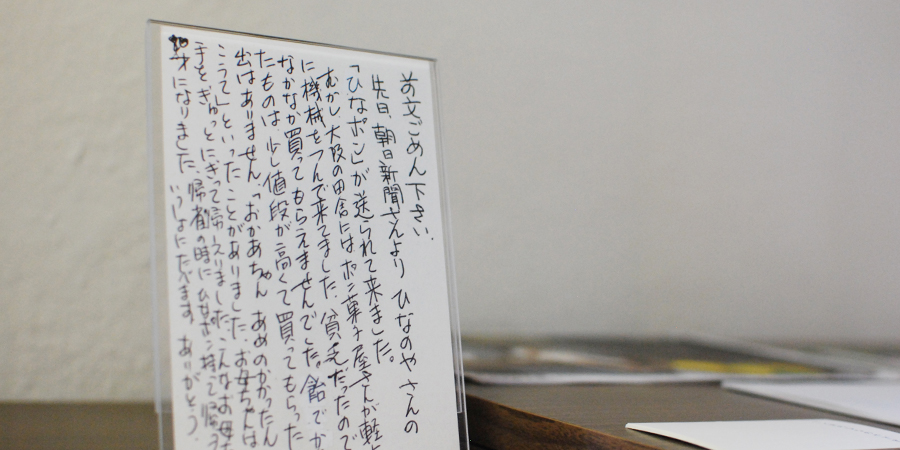 前文ごめん下さい.
先日、朝日新聞さんより ひなのやさんの
「ひなポン」が送られて来ました。
むかし大阪の田舎には ポン菓子屋さんが軽
に機械をつんで来てました。貧乏だったので
なかなか買ってもらえませんでした。飴でか
たものは、少し値段が高くて買ってもらった
出はありません。「おかあちゃん あめのかかったん
こうて」といったことがありました。お母ちゃんは
手をぎゅっとにぎって帰えりました。こんなお母
才になりました。帰省の時に ひなポン持って帰って
いっしょにたべます。ありがとう。